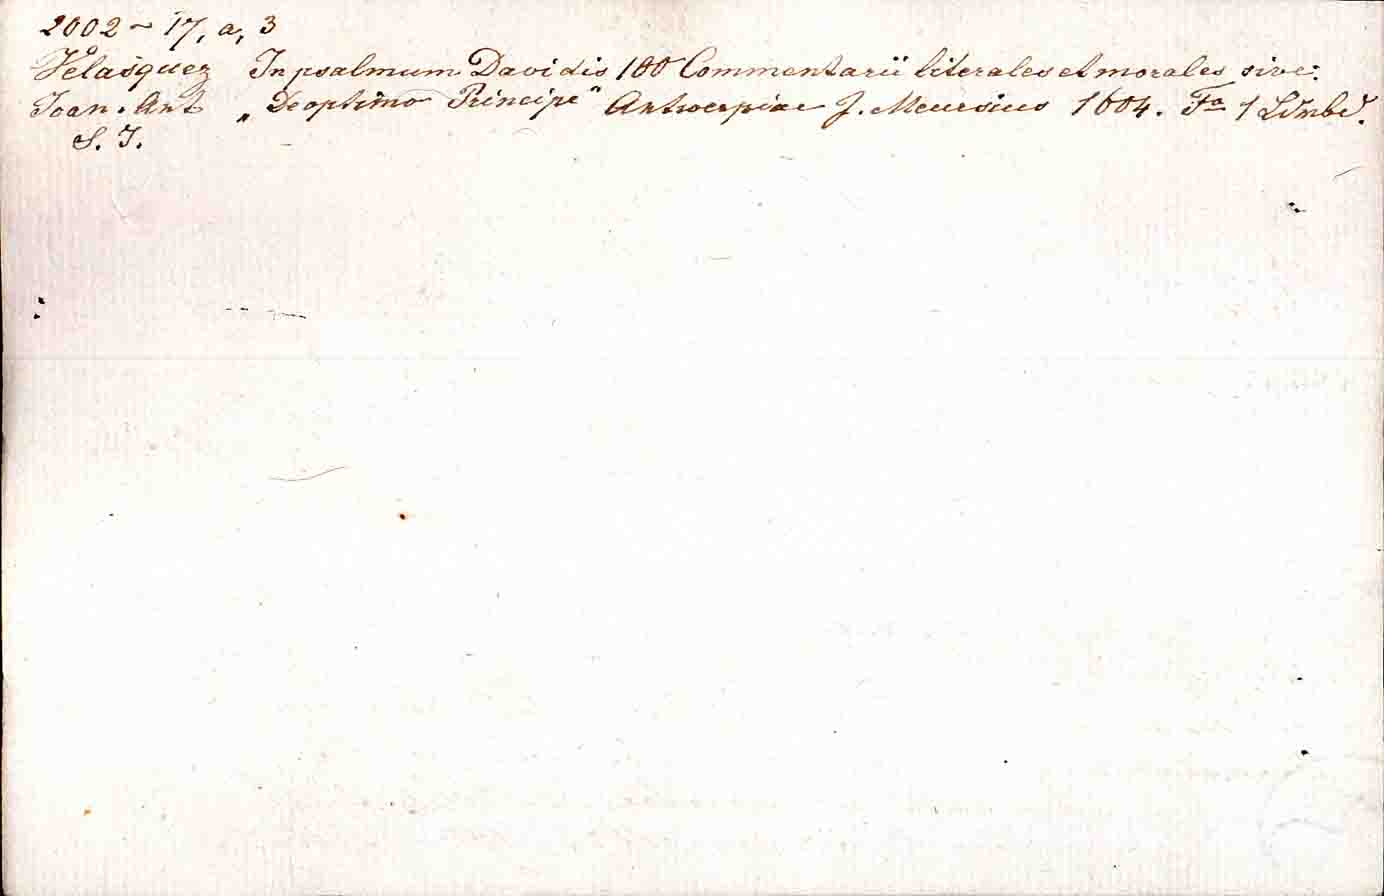 2002 ~ 17, a, 3
Velasquez In psalmum Davidis 100 Commentarii literales et morales sive:
Joan. Ant „De optimo Principe" Antwerpiae J. Meursius 1604. Fo 1
S. J.